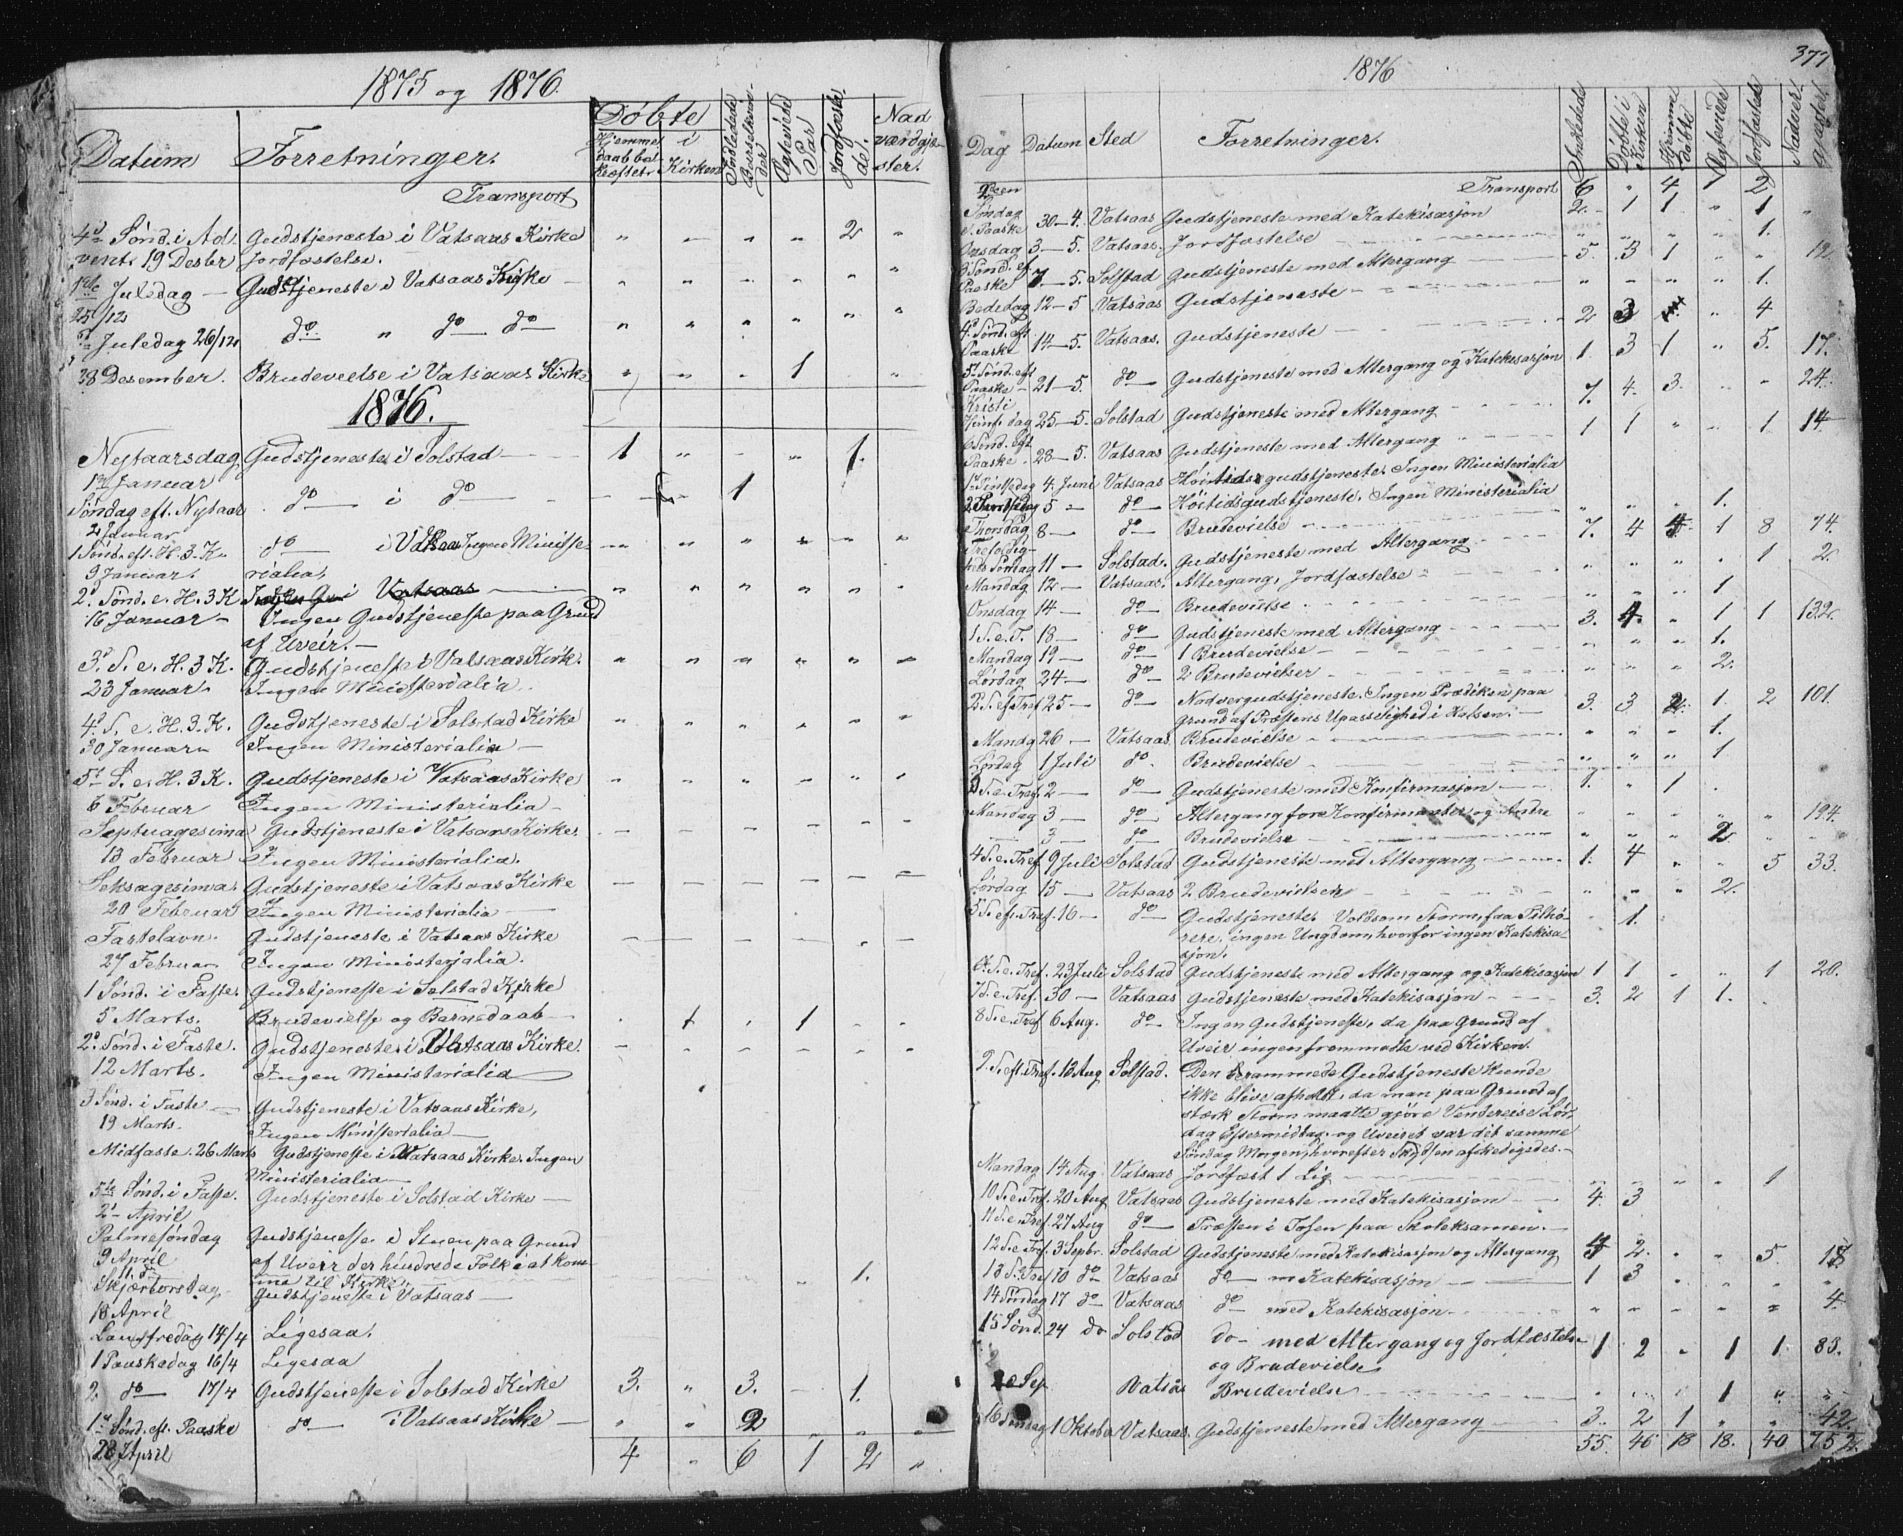 1875 og 1876.
Datum Forretninger. Døbte Indledede Barselkvinder Ægteviede Par Jordfæstede. Nadværdgjæster.
Hjemmedaab bekræftet i Kirken
Transport
4de Sønd. i Ad- Gudstjeneste i Vatsaas Kirke " - " " 2 "
vent. 19 Desbr Jordfæstelse.
1ste Juledag — Gudstjeneste i Vatsaas Kirke " " " " " "
25/12
2 Juledag 26/12 do " do do " " " " " "
28 Desember. Brudevielse i Vatsaas Kirke " " . 1 "
1876.
Nytaarsdag Gudstjeneste i Solstad 1 " " 1.
1ste Januar
Søndag eft. Nytaar do i do 1
2 Januar
1 Sønd. eft. H. 3 K. do i Vatsaas Ingen Ministe-
9 Januar. rialia,
2. Sønd. e. H. 3 K
16 Januar — Ingen Gudstjeneste paa Grund
af Uveir. —
3. S. e. H. 3 K. Gudstjeneste i Vatsaas Kirk.
23 Januar. Ingen Ministerialia.
4. S. e. H. 3. K. Gudstjeneste i Solstad Kirke
30 Januar Ingen Ministerialia —
5t S. e. H. 3 K. Gudstjeneste i Vatsaas Kirke
6 Februar Ingen Ministerialia —
Septuagesima Gudstjeneste i Vatsaas Kirke.
13 Februar Ingen Ministerialia.
Seksagesima. Gudstjeneste i Vatsaas Kirke
20 Februar Ingen Ministerialia —
Fastelavn. Gudstjeneste i Vatsaas Kirke
27 Februar Ingen Ministerialia.
1 Sønd. i Faste. Gudstjeneste i Solstad Kirke
5 Marts. Brudevielse og Barnedaab — . 1 . 1 . .
2. Sønd. i Faste. Gudstjeneste i Vatsaas Kirke.
12 Marts. Ingen Ministerialia
3 Sønd. i Faste — Gudstjeneste i Vatsaas Kirke,
19 Marts. Ingen Ministerialia —
Midfaste. 26 Marts Gudstjeneste i Vatsaas Kirke. Ingen
Ministerialia —
5te Sønd. i Faste. Gudstjeneste i Solstad Kirke —
2 April
Palmesøndag Gudstjeneste i Stuen paa Grund
9 April af Uveir der hindrede Folk i at kom-
me til Kirke. " 1.
Skjærtorsdag Gudstjeneste i Vatsaas —
13 April
Langfredag 14/4 Ligesaa.
1 Paaskedag 16/4 Ligesaa
2. do 17/4 Gudstjeneste i Solstad Kirke 3. " 3. - 1.
1ste Sønd. eft. Paaske do i Vatsaas Kirke — . . 2
23 April 4 " 6 1 2 "
1876
377
Dag Datum Sted Forretninger. Indledede Døbte i Kirken Hjemme døbte Ægteviede Jordfæstede Nadver gjæster
Transport 6 " 4 1 2
2den Søndag e. Paaske 30 - 4. Vatsaas Gudstjeneste med Katekisasjon 2. 1 1 " 1 "
Onsdag 3 - 5. Vatsaas. Jordfæstelse " " " " 1.
3 Sønd. ef. Paaske 7 - 5. Solstad Gudstjeneste med Altergang 5. 3 1 " " 12
Bededag 12 - 5 Vatsaas Gudstjeneste " " " " 1.
4. Sønd. eft. Paaske 14 - 5. Vatsaas. Gudstjeneste 2 3 " 4
5te Sønd. eft. Paaske 21 - 5. do Gudstjeneste med Altergang og Katekisasjon 1 3 1 " 5. 17.
Kristi Himf. dag 25 - 5. Solstad Gudstjeneste med Altergang 7. 4. 3. " " 24.
6 Sønd. eft. Paaske 28 - 5. Vatsaas Gudstjeneste med Altergang 1 1 " " 1 14
1ste Pinsedag 4. Juni Vatsaas Høitidsgudstjeneste. Ingen Ministerialia
2 Pinsedag 5 — do Høitidsgudstjeneste. Ingen Ministerialia
Thorsdag 8 — do Brudevielse " " " 1.
Trefoldig-
heds Søndag 11 — Solstad. Gudstjeneste med Altergang 7. 4 4 1 8 74.
Mandag 12 — Vatsaas. Altergang, Jordfæstelse " " " " 1 2
Onsdag 14 — do Brudevielse " " " 1
1 S. e. T. 18 — do Gudstjeneste med Altergang 3. 4. " 1 1 132.
Mandag 19 — do 1 Brudevielse " " " 1.
Lørdag 24 — do 2 Brudevielser " " " 2.
2 S. ef. Tref 25 — do Nadvergudstjeneste. Ingen Prædiken paa
Grund af Præstens Upasselighed i Halsen. — 3. 3 2. 1. 2 101.
Mandg 26 — Vatsaas Brudevielse " " " 1.
Lørdag 1 Juli do. Brudevielse " " " 1
3 S. e. Tref. 2 — do Gudstjeneste med Konfirmasjon 1. " 1
Mandag 3 — do Altergang for Konfirmanter og Andre " " " " " 194.
— 3 — do Brudevielse " " " 2
4 S. e. Tref 9 Juli Solstad Gudstjeneste med Altergang 1. 4 " " 5 33.
Lørdag 15 — Vatsaas 2 Brudevielser " " " 2.
5 S. ef. Tref. 16 — do Gudstjeneste. Voldsom Storm, faa Tilhø-
rere, ingen Ungdom, hvorfor ingen Katekisa-
sjon. . 1.
6. S. e. Tref. 23 Juli Solstad Gudstjeneste med Altergang og Katekisasjon 1 1 . " 1 20.
7 S. e. Tref. 30 — Vatsaas Gudstjeneste med Katekisasjon 3. 2 1 1.
8 S. e. Tref 6 Aug. do Ingen Gudstjeneste, da paa Grund af
Uveir ingen fremmøtte ved Kirken.
9. S. eft. Tref. 13 Aug Solstad. Den berammede Gudstjeneste kunde
ikke blive afholdt, da man paa Grund af
stærk Storm maatte gjøre Vendereise Lør-
dag Eftermiddag og Uveiret var det samme
Søndag Morgen, hvorefter Skydsen afskedigedes. —
Mandag 14 Aug. Vatsaas Jordfæst 1 Lig 1
10 S. e. Tref. 20 Aug Vatsaas Gudstjeneste med Katekisasjon 4. 3
11 S. e. Tref. 27 Aug do Præsten i Tosen paa Skoleksamen. —
12 S. e. Tref. 3 Sepbr. Solstad Gudstjeneste med Katekisasjon og Altergang 2. . " 5.
13 S. Tref 10 do Vatsaas do m Katekisasjon 1 3
14 Søndag 17 do Vatsaas do med Katekisasjon. " " " " " 4.
15 Sønd. 24 do Solstad do med Altergang og Jordfæstelse
og Brudevielse 1 2 " 1 1. 83.
Sep Vatsås Brudevielse 1 "
16 Søndag 1 Oktober Vatsaas. Gudstjeneste med Altergang 3. 2 1 " " 42.
55. 46 18 18. 40 752.